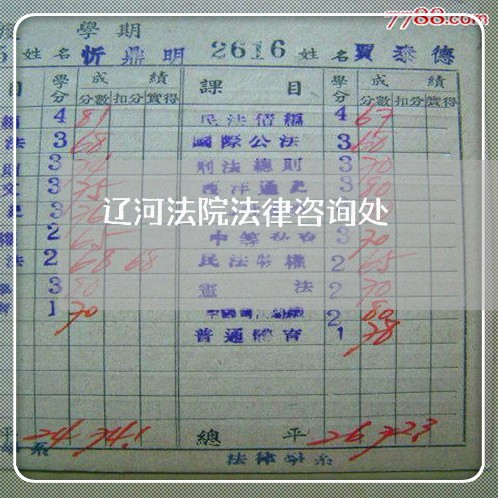 7788.com
學期
姓名 忻鼎明 2616 姓名 賈泰德
目 學分 成績 課目 學分 成績
分數 扣分 實得 分數 扣分 實得
4 81 民法債編 4 67
法 3 68 國際公法 3 60
3 刑法總則 3 70
3 75 西洋通史 3 80
辽河法院法律咨询处
2 65 3 70
法 2 68 68 民法物權 2 65
3 80 憲法 2 70
1 70 2 80
普通體育 1 78
24 74.1 總平 26 72.3
系 法律學系